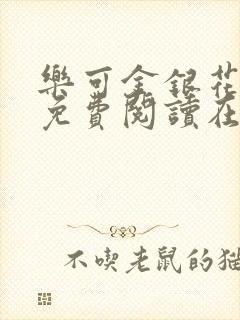 樂可金銀花
免費閱讀在
不喫老鼠的猫